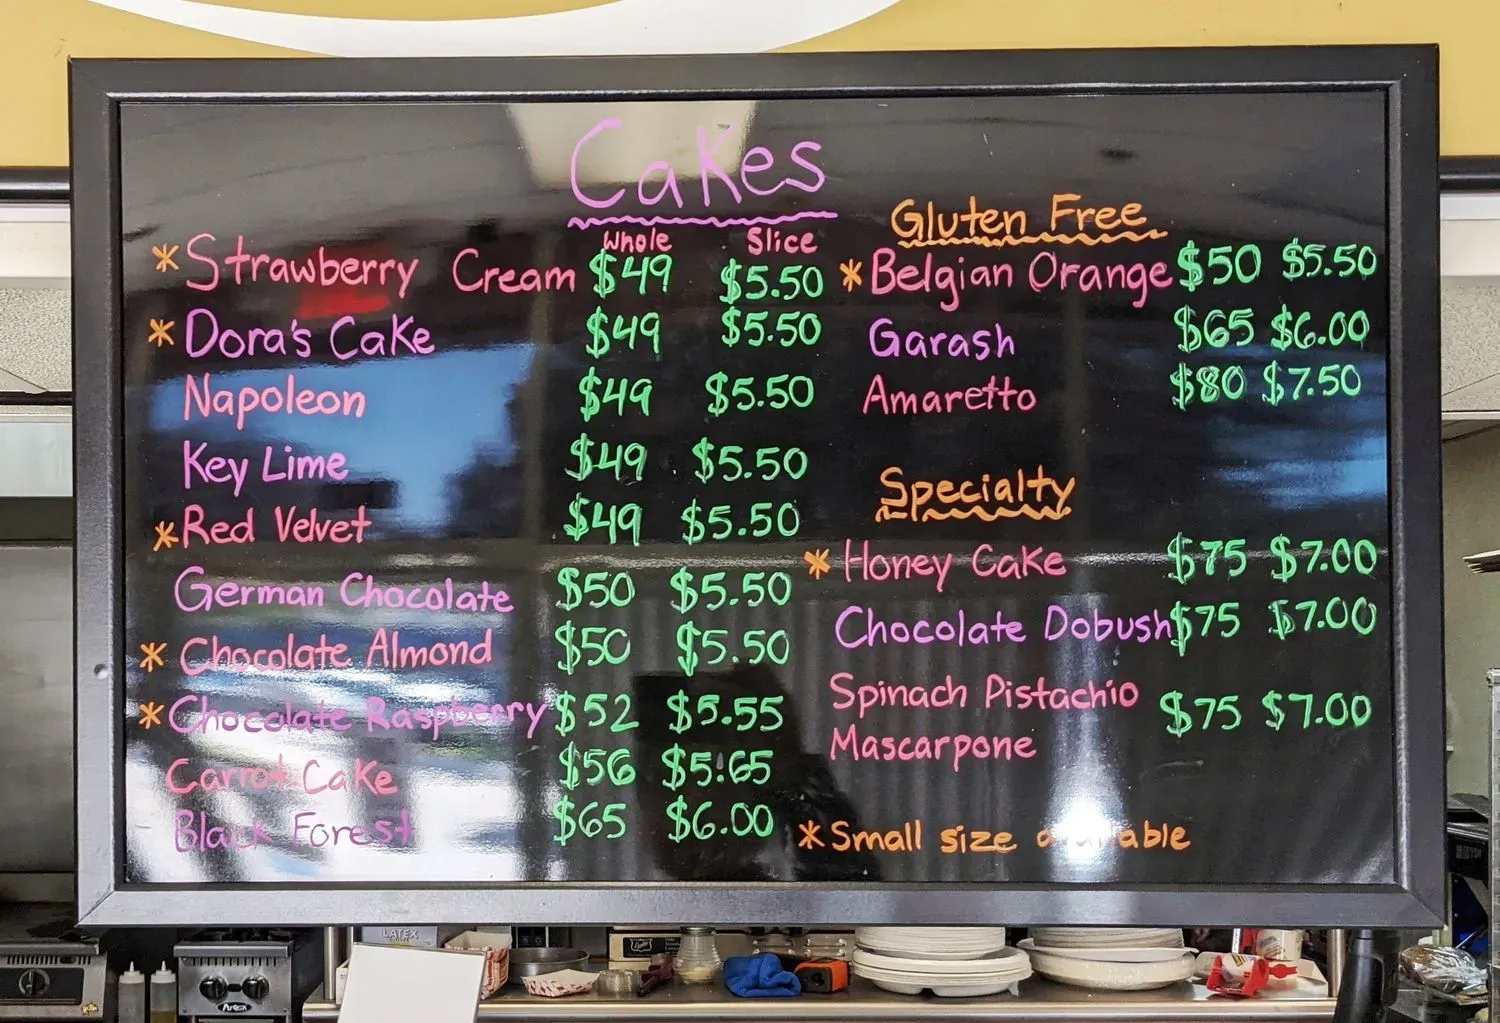 Cakes
Whole Slice
*Strawberry Cream $49 $5.50
*Dora's Cake $49 $5.50
Napoleon $49 $5.50
Key Lime $49 $5.50
*Red Velvet $49 $5.50
German Chocolate $50 $5.50
*Chocolate Almond $50 $5.50
*Chocolate Raspberry $52 $5.55
Carrot Cake $56 $5.65
Black Forest $65 $6.00
Gluten Free
*Belgian Orange $50 $5.50
Garash $65 $6.00
Amaretto $80 $7.50
Specialty
*Honey Cake $75 $7.00
Chocolate Dobush $75 $7.00
Spinach Pistachio
Mascarpone $75 $7.00
*Small size available
LATEX